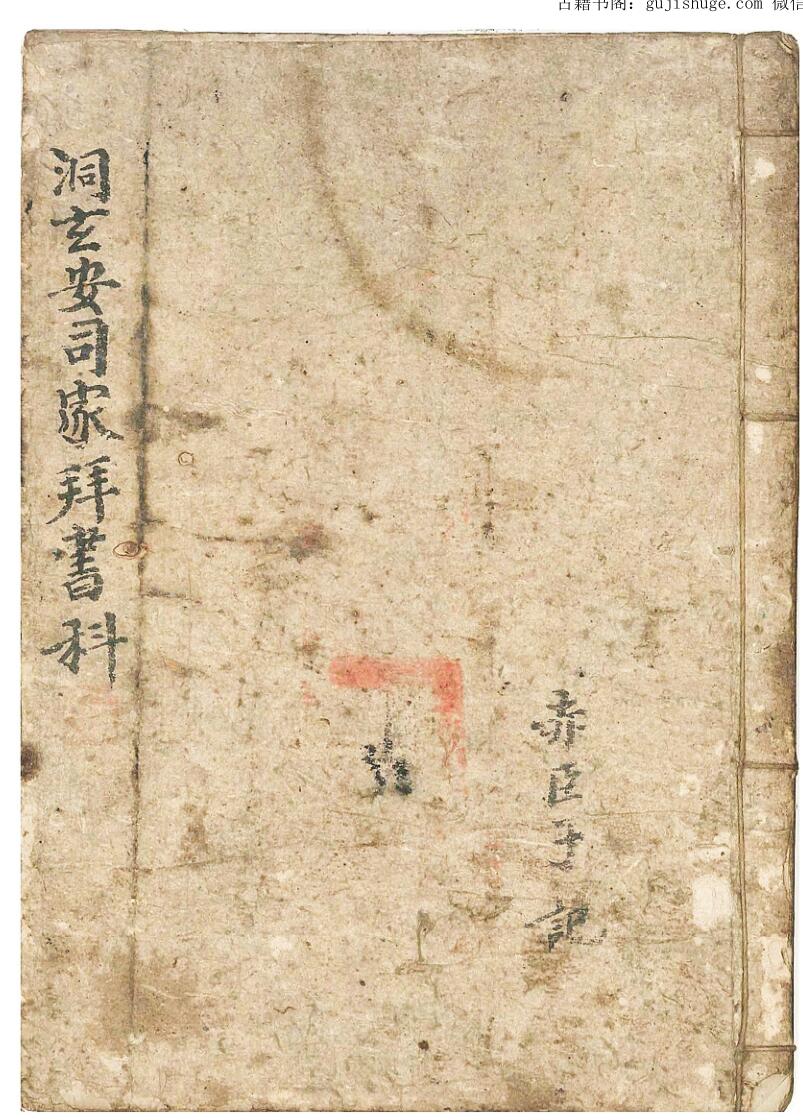 古籍书阁：gujishuge.com 微信
洞玄安司家拜書科
赤臣子記